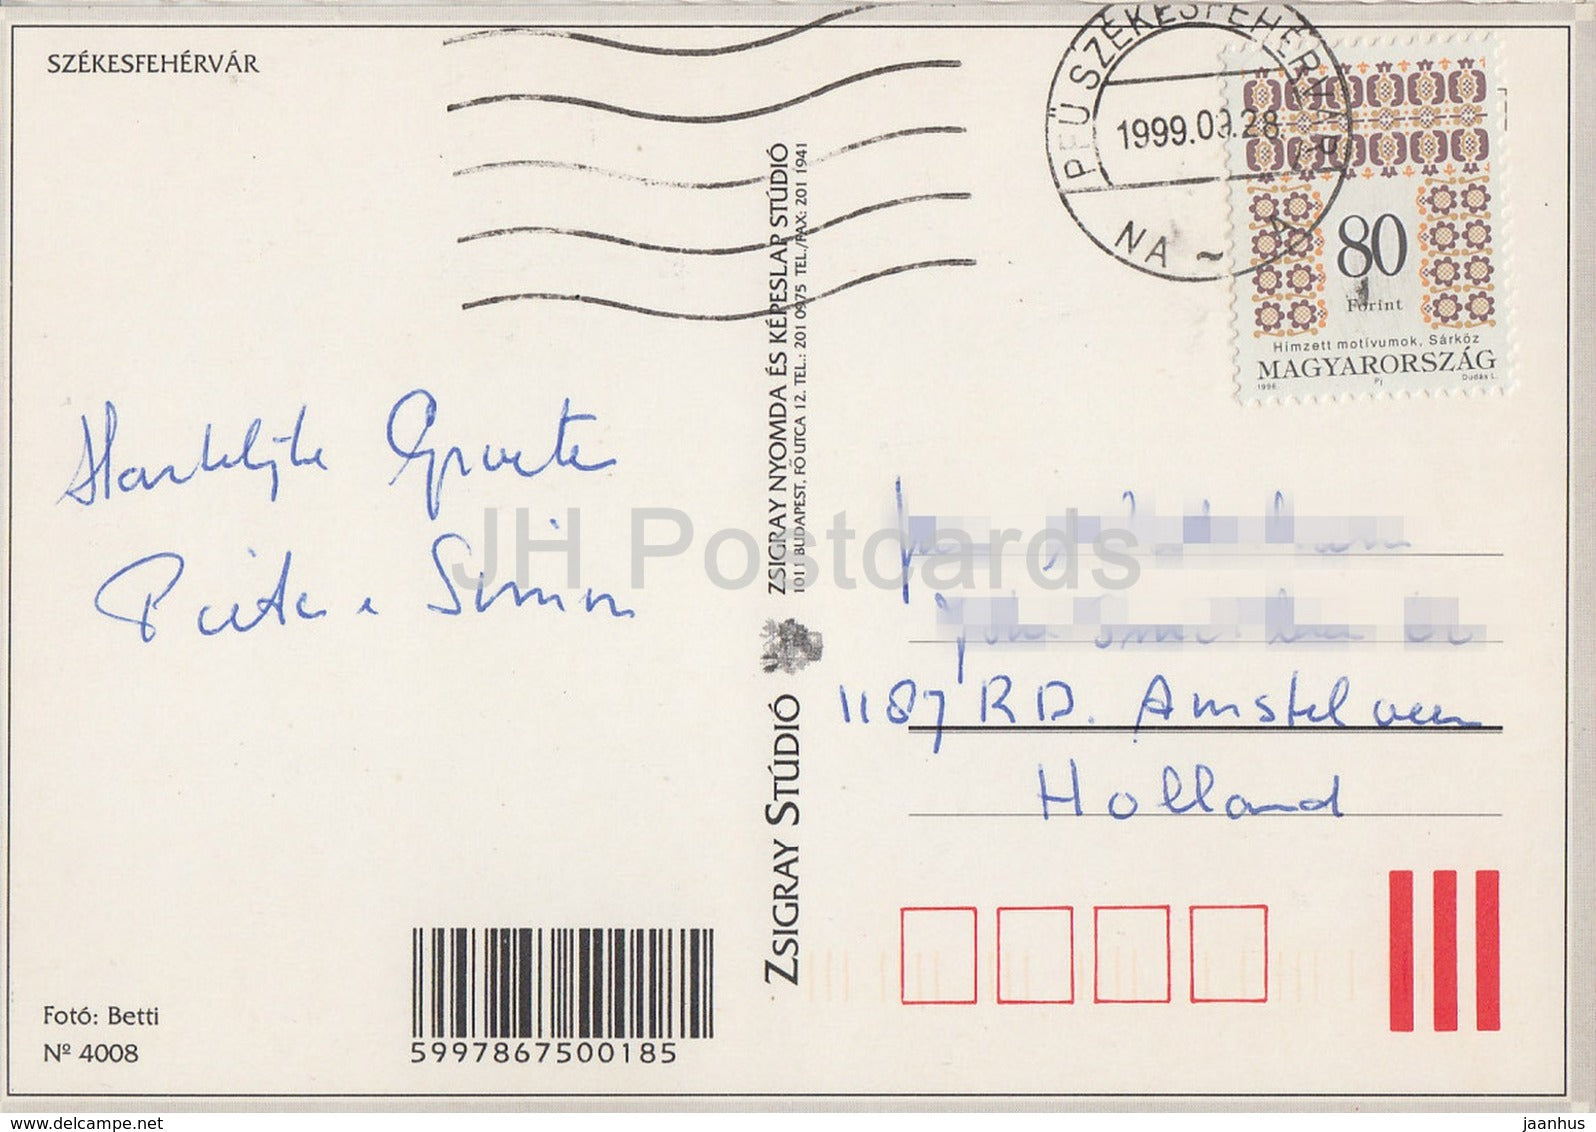 SZÉKESFEHÉRVÁR
PFÜ SZÉKESFEHÉRVÁR
1999.09.28
NA ~
80
Forint
Hímzett motívumok, Sárköz
MAGYARORSZÁG
1996. Pj Dudás L.
Hartelijke Groeten
Pieter e Simon
ZSIGRAY STÚDIÓ
ZSIGRAY NYOMDA ÉS KÉPESLAP STÚDIÓ
1011 BUDAPEST, FŐ UTCA 12. TEL.: 201 0975 TEL./FAX: 201 1941
1187 RD. Amstelveen
Holland
Fotó: Betti
Nº 4008
5997867500185
JH Postcards
delcampe.net
jaanhus